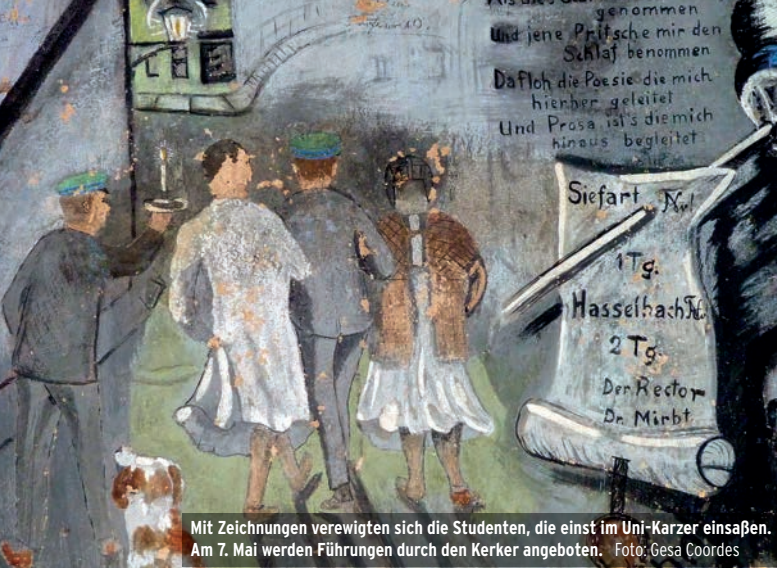 genommen
Und jene Pritsche mir den
Schlaf benommen
Da floh die Poesie die mich
hierher geleitet
Und Prosa ist's die mich
hinaus begleitet
Siefart
1 Tg.
Hasselbach
2 Tg.
Der Rector
Dr. Mirbt
Mit Zeichnungen verewigten sich die Studenten, die einst im Uni-Karzer einsaßen.
Am 7. Mai werden Führungen durch den Kerker angeboten. Foto: Gesa Coordes